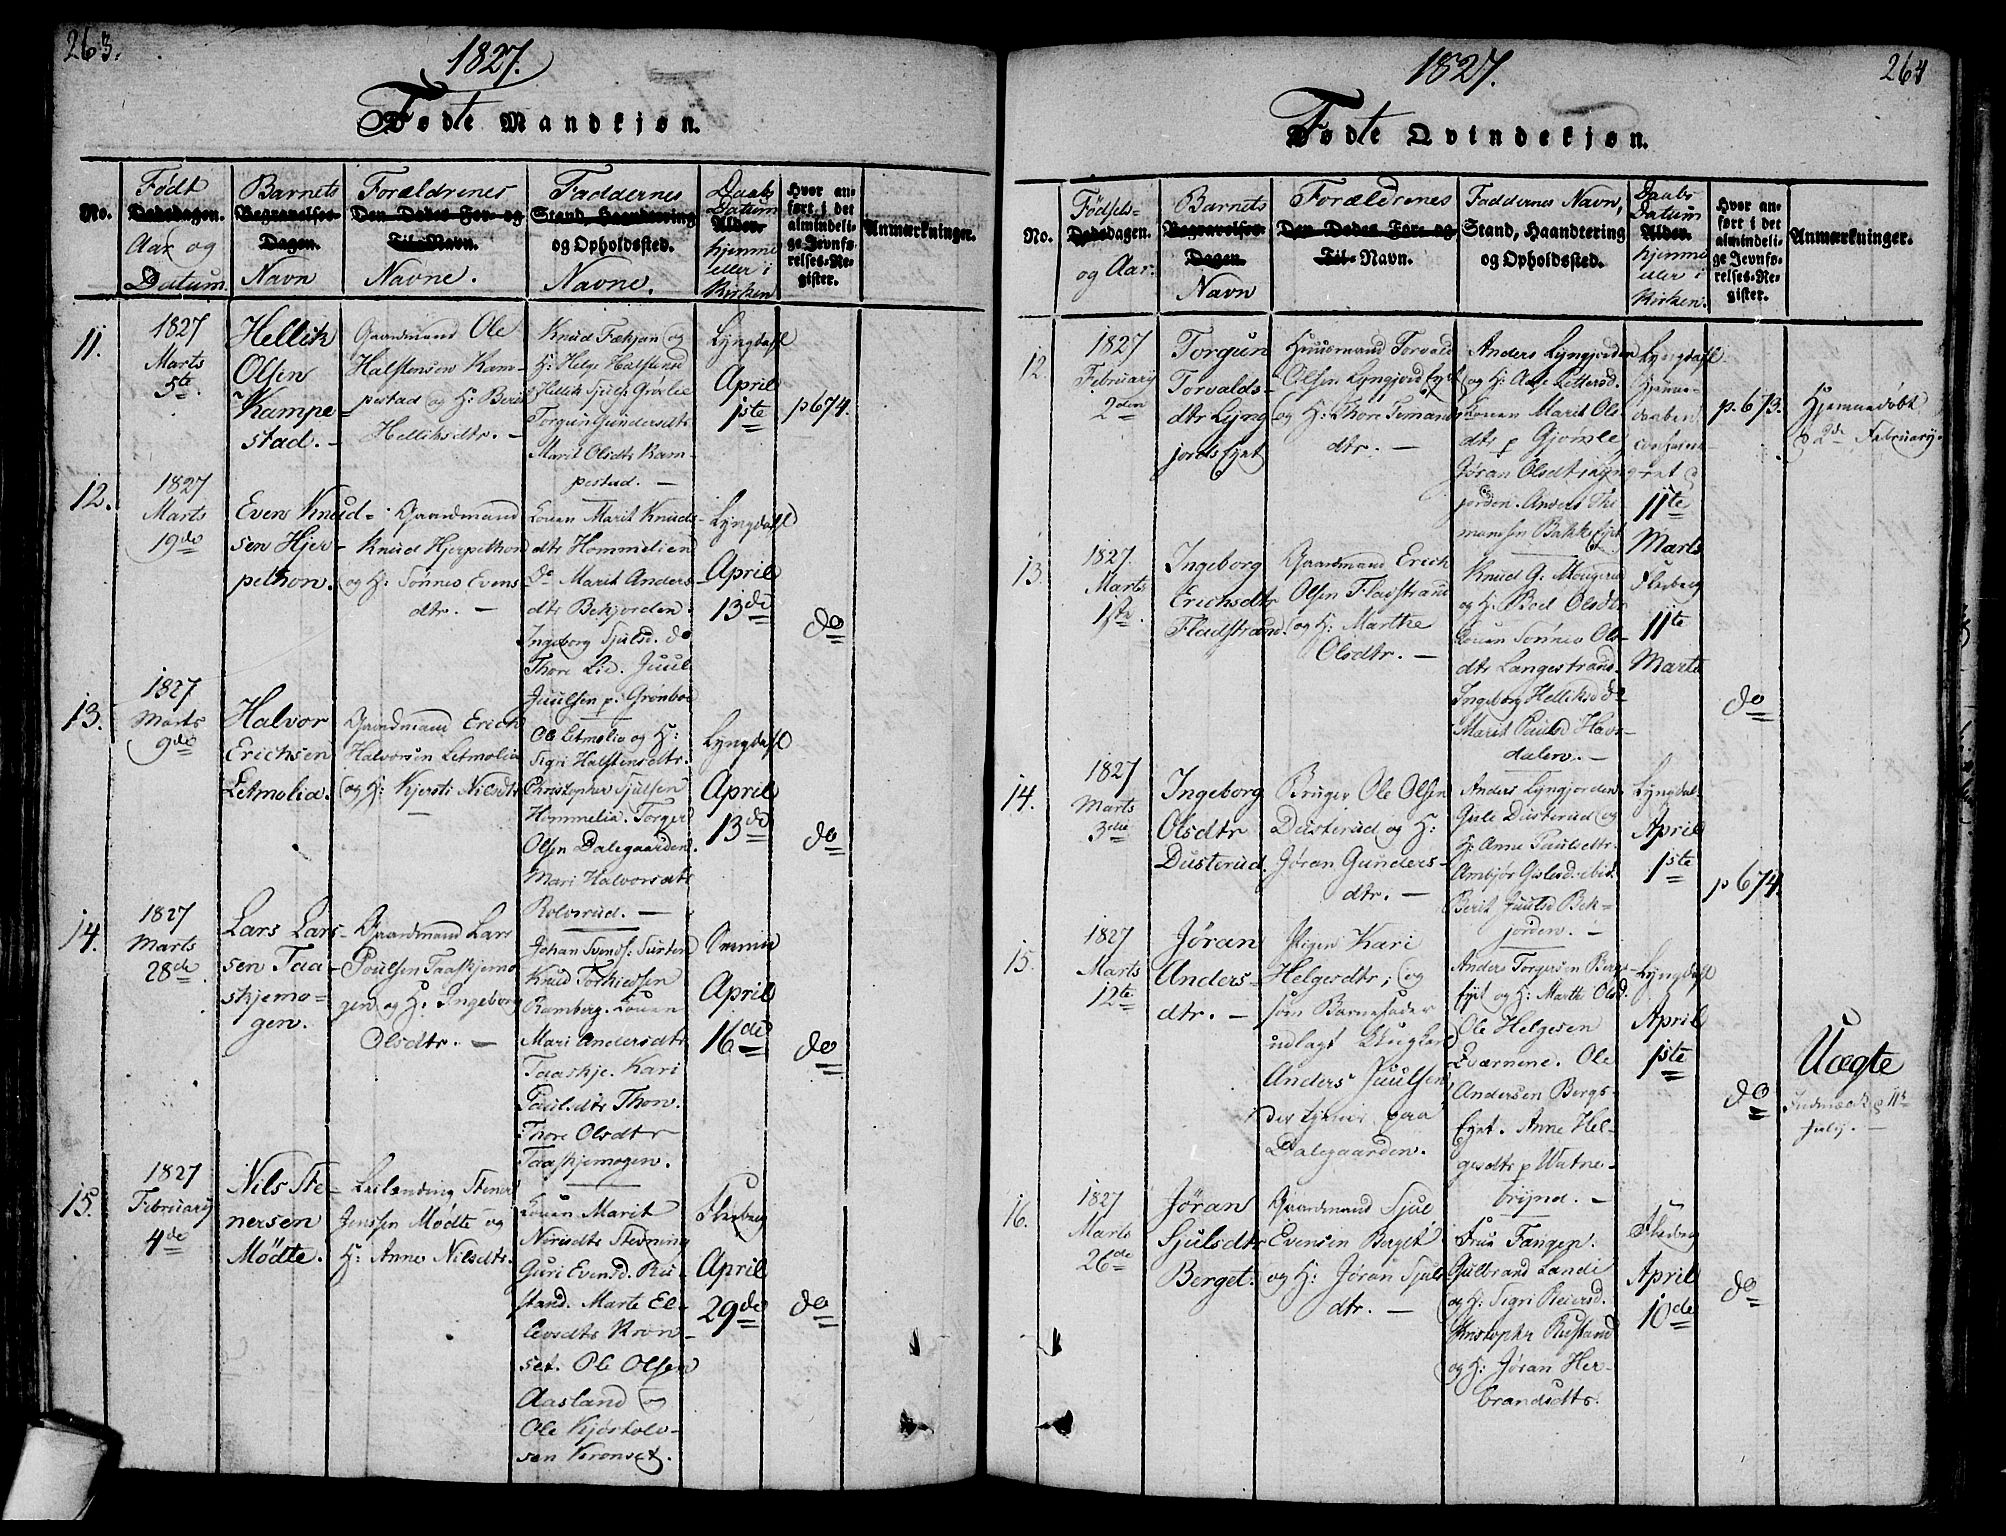 263.
1827.
Fødte Mandkjøn.
No.
Født
Dødsdagen.
Aar og
Datum.
Barnets
Begravelses-
Dagen.
Navn
Forældrenes
Den Dødes For- og
Til-Navn.
Navne.
Faddernes
Stand, Haandtering
og Opholdssted.
Navne.
Daabs
Datum
Alder.
hjemme
eller i
Kirken
Hvor an-
ført i det
almindeli-
ge Jevnfø-
relses-Re-
gister.
Anmærkninger.
11.
1827
Marts
5te
Hellik
Olsen
Kampe-
stad.
Gaardmand Ole
Halstensen Kam-
pestad og H: Berit
Helliksdtr.
Knud Fækjan og
H: Helge Halstensd
Hellik Sjuls: Grøslie
Torgun Gundersdtr
Marit Olsdtr Kam-
pestad.
Lyngdahl
April
1ste
p 674.
12.
1827
Marts
19de
Even Knud-
sen Hjer-
pethon.
Gaardmand
Knud Hjerpethon
og H: Tønnes Evens
dtr.
Louen Marit Knuds-
dtr Hommelien
Do Marit Anders-
dtr Bekjorden.
Ingeborg Sjulsd. do
Thore Lie. Juul
Juulsen p. Grønboe
Lyngdahl
April
13de
do
13.
1827
Marts
9de
Halvor
Erichsen
Letmolia.
Gaardmand Erich
Halvorsen Letmolia
og H: Kjersti Nilsdtr
Ole Letmolia og H:
Sigri Halstensdtr.
Christopher Sjulsen
Hommelia. Torger
Olsen Dalegaarden.
Mari Halvorsdtr
Rolvsrud.
Lyngdahl
April
13de
do
14.
1827
Marts
28de
Lars Lars-
sen Taa-
skjemo-
gen.
Gaardmand Lars
Poulsen Taaskjemo
gen og H: Ingeborg
Olsdtr.
Johan Svends:
Knud Torkildsen
Ramberg. Louen
Mari Andersdtr
Taaskje. Kari
Paulsdtr Thon.
Thore Olsdtr
Taaskjemogen.
April
16de
do
15.
1827
Februarÿ
4de
Nils Ste-
nersen
Mødte.
Leilænding Stener
Jenssen Mødte og
H: Anne Nilsdtr.
Louen Marit
Nirisdtr Stevning
Guri Evensd. Ru-
stand. Marte El-
levsdtr Kron-
set. Ole Olsen
Aasland og
Ole Kjøstolv-
sen Kronset.
Flesberg
April
29de
do
264
1827.
Fødte Qvindekjøn.
No.
Fødsels-
Dødsdagen.
og Aar.
Barnets
Begravelses-
Dagen.
Navn
Forældrenes
Den Dødes For- og
Til-Navn.
Faddernes Navn,
Stand, Haandtering
og Opholdssted.
Daabs
Datum
Alder.
hjemme
eller i
Kirken.
Hvor an-
ført i det
almindeli-
ge Jevnfø-
relses-Re-
gister.
Anmærkninger.
12.
1827
Februarÿ
2den
Torgun
Torvalds-
dtr Lyng
jords Eyet
Huusmand Torvald
Olsen Lyngjord Eyet
og H: Thore Simans
dtr.
Anders Lyngjorden
og H: Aase Pettersd.
Louen Marit Ols
dtr p Gjømle
Jøran Olsdtr Lyng-
jorden. Anders Thi
mansen Bakke Eyet
Lyngdahl
Hjemme-
daaben
confirme-
ret d
11te
Marts
p. 673.
Hjemmedøbt
d 2de Februarÿ.
13.
1827.
Marts
1ste
Ingeborg
Erichsdtr
Fladstrand.
Gaardmand Erich
Olsen Fladstrand
og H: Marthe
Olsdtr.
Knud G: Mogerud
og H: Boel Olsdtr
Louen Tønnes Ols-
dtr Langestrand.
Ingeborg Helliksd do
Marit Paulsd Havs-
dalen.
Flesberg
11te
Marts
do
14.
1827
Marts
3die
Ingeborg
Olsdtr
Dusterud.
Bruger Ole Olsen
Dusterud og H:
Jøran Gunders-
dtr.
Anders Lyngjorden
Gule Dusterud og
H: Anne Paulsdtr.
Ambjør Gulsd. ibid.
Berit Juulsd Bek-
jorden.
Lyngdal
April
1ste
p 674.
15.
1827
Marts
12te
Jøran
Anders-
dtr.
Pigen Kari
Helgesdtr; og
som Barnefader
udlagt Ungkarl
Anders Juulsen
der tjener paa
Dalegaarden.
Anders Torgersen Bergs-
Eyet og H: Marthe Olsd.
Ole Helgesen
Qværnene. Ole
Andersen Bergs-
Eyet. Anne Hel-
gesdtr p Watne-
brynd.
Lyngdahl
April
1ste
do
Uægte
Indmældt d 11te
July.
16.
1827
Marts
26de
Jøran
Sjulsdtr
Berget.
Gaardmand Sjul
Evensen Berget
og H: Jøran Sjuls
dtr.
Frue Fangen.
Gulbrand Lande
og H: Sigri Reiersd.
Kristopher Rustand
og H: Jøran Her-
brandsdtr.
Flesberg
April
10de
do